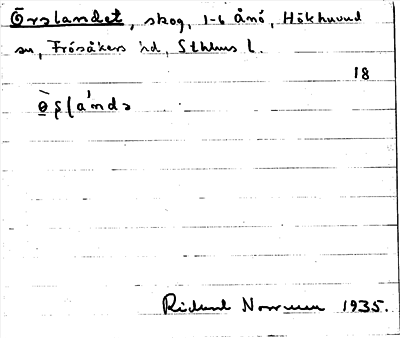 Örslandet, skog, 1-6 Ånö, Hökhuvud
sn, Frösåkers hd, Sthlms l.
18
Richard Norrman 1935.